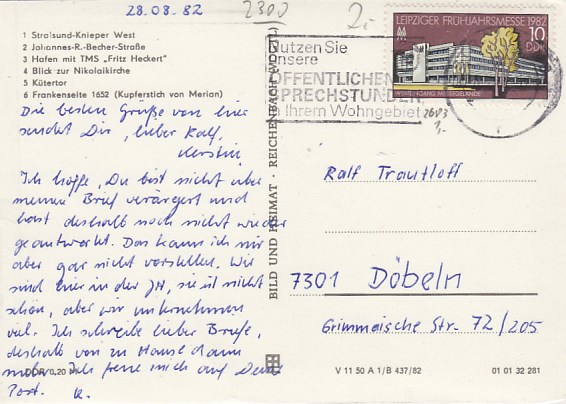 28.08.82 2300 2,-
1 Stralsund-Knieper West
2 Johannes-R.-Becher-Straße
3 Hafen mit TMS „Fritz Heckert"
4 Blick zur Nikolaikirche
5 Kütertor
6 Frankenseite 1652 (Kupferstich von Merian)
Die besten Grüße von hier
sendet Dir, lieber Ralf,
Kerstin.
Ich hoffe, Du bist nicht über
meinen Brief verärgert und
hast deshalb noch nicht wieder
geantwortet. Das kann ich mir
aber gar nicht vorstellen. Wir
sind hier in der JH, sie ist nicht
schön, aber wir unternehmen
viel. Ich schreibe lieber Briefe,
deshalb von zu Hause dann
mehr. Ich freue mich auf Deine
Post. K.
DDR/0,20 M
BILD UND HEIMAT · REICHENBACH (VOGTL)
LEIPZIGER FRÜHJAHRSMESSE 1982
10
DDR
Nutzen Sie
unsere
ÖFFENTLICHEN
SPRECHSTUNDEN
in Ihrem Wohngebiet
Ralf Trautloff
7301 Döbeln
Grimmaische Str. 72/205
V 11 50 A 1/B 437/82 01 01 32 281